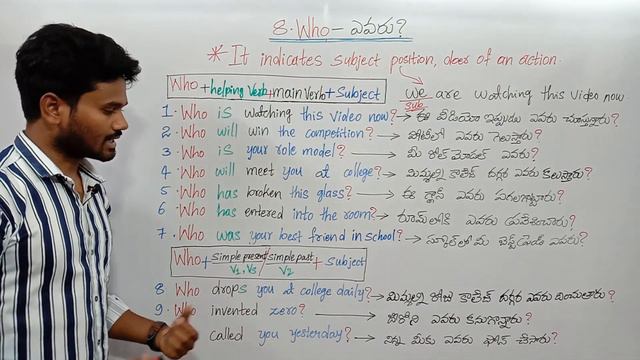 8. Who - ఎవరు?
* It indicates subject position, doer of an action.
Who + helping Verb + main Verb + Subject
We are watching this video now.
Sub
1. Who is watching this video now? → ఈ వీడియో ఇప్పుడు ఎవరు చూస్తున్నారు?
2. Who will win the competition? → పోటీలో ఎవరు గెలుస్తారు?
3. Who is your role model? → మీ రోల్ మోడల్ ఎవరు?
4. Who will meet you at college? → మిమ్మల్ని కాలేజ్ దగ్గర ఎవరు కలుస్తారు?
5. Who has broken this glass? → ఈ గ్లాస్ ఎవరు పగలగొట్టారు?
6. Who has entered into the room? → రూమ్‌లోకి ఎవరు ప్రవేశించారు?
7. Who was your best friend in school? → స్కూల్‌లో మీ బెస్ట్ ఫ్రెండ్ ఎవరు?
Who + Simple present / Simple past + Subject
V1, V5 V2
8. Who drops you at college daily? → మిమ్మల్ని రోజు కాలేజ్ దగ్గర ఎవరు దించుతారు?
9. Who invented zero? → జీరోని ఎవరు కనుగొన్నారు?
called you yesterday? → నిన్న మీకు ఎవరు ఫోన్ చేసారు?